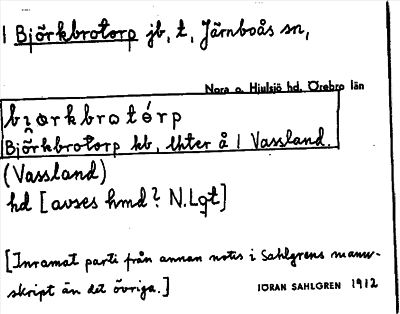 1 Björkbrotorp jb, t, Järnboås sn,
Nora o. Hjulsjö hd. Örebro län
bi̯orkbrotérp
Björkbrotorp hb, lhter å 1 Vassland.
(Vassland)
hd [avses hmd? N.Lgt]
[Inramat parti från annan notis i Sahlgrens manu-
skript än det övriga.]
JÖRAN SAHLGREN 1912